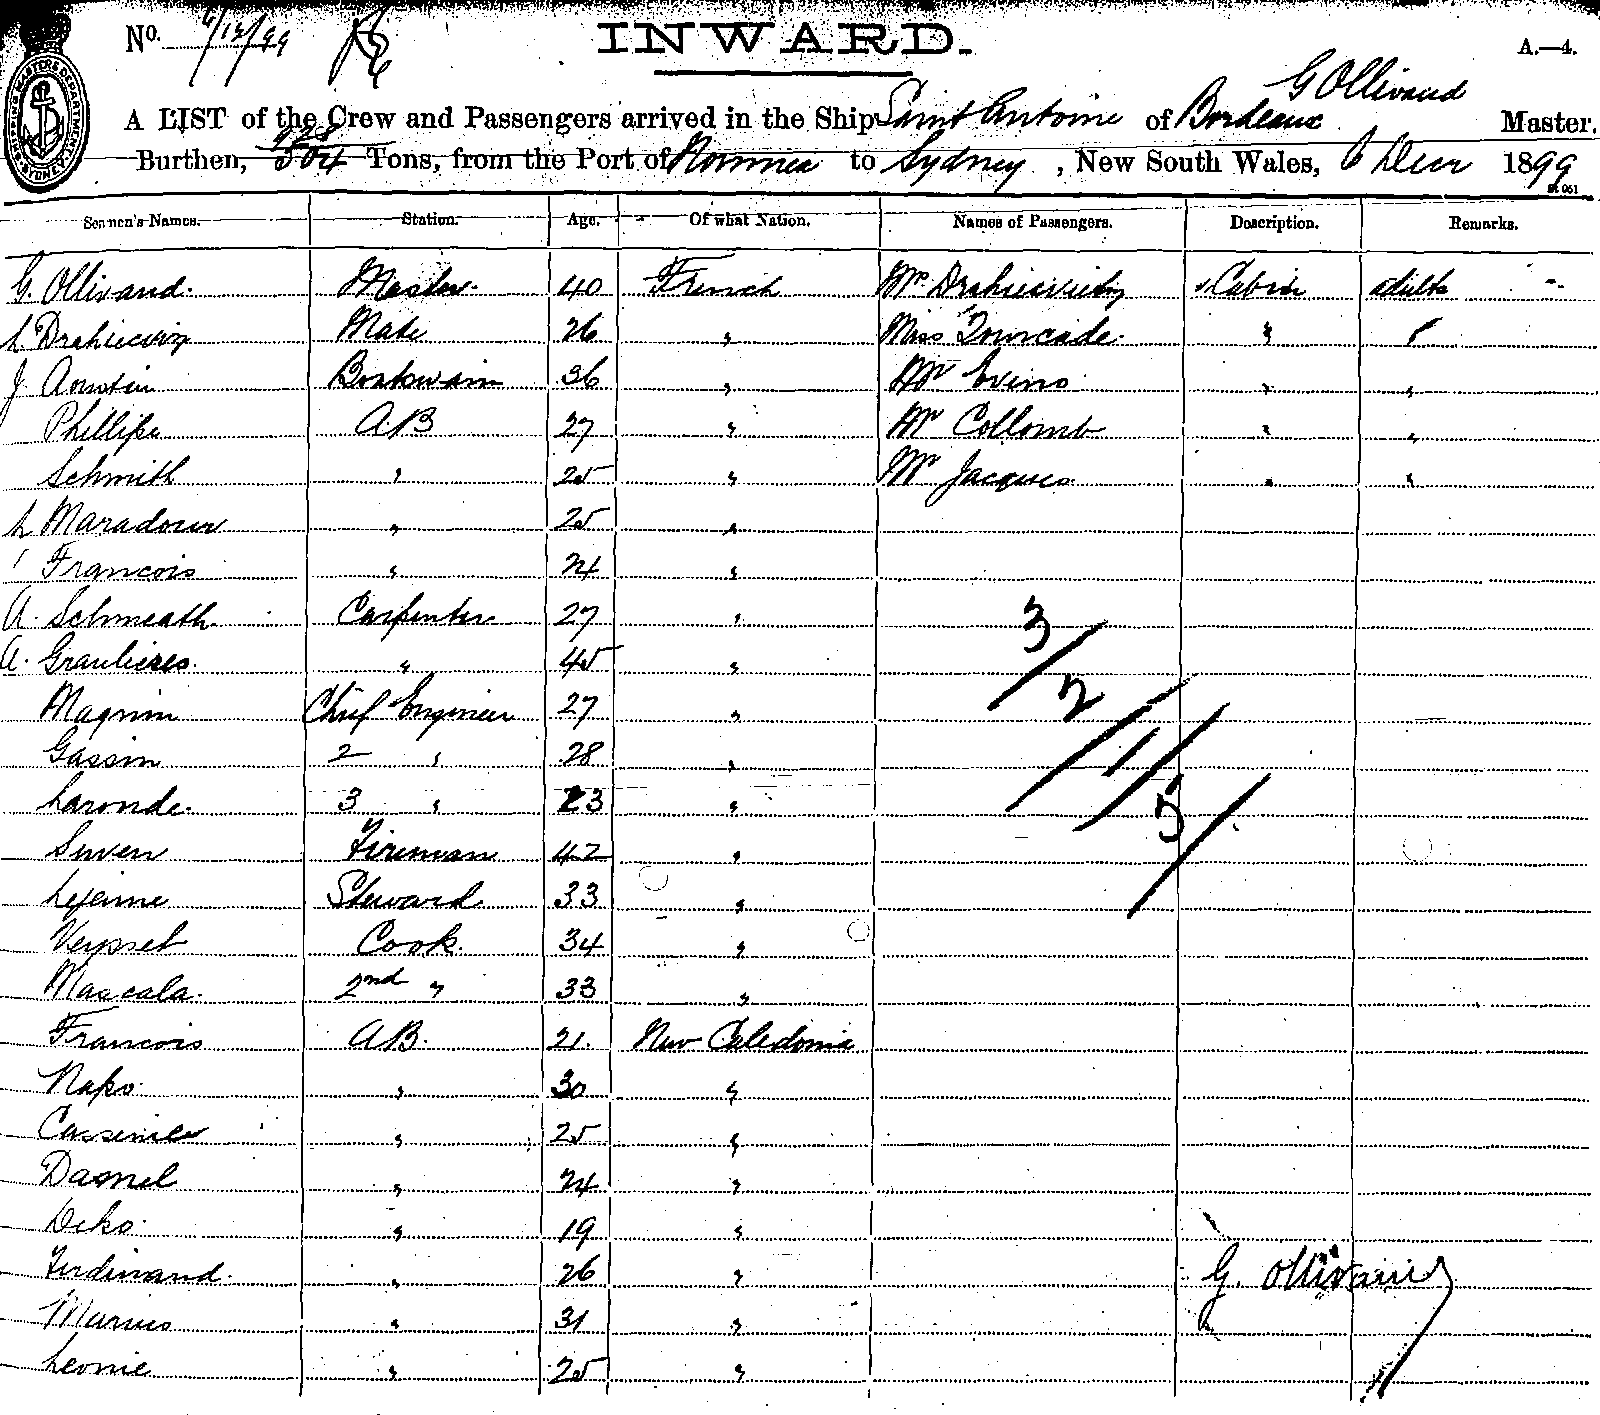 No. 6/12/99
INWARD.
A.—4.
G Ollivaud
A LIST of the Crew and Passengers arrived in the Ship Saint Antoine of Bordeaux Master.
Burthen, 504 Tons, from the Port of Noumea to Sydney, New South Wales, 6 Decr 1899
Seamen's Names. Station. Age. Of what Nation. Names of Passengers. Description. Remarks.
G. Ollivaud. Master. 40 French Cabin adults
L Mate 26 " Miss " "
J. Boatswain 36 " Mr " "
Phillipe A.B 27 " Mr Collomb " "
Schmith " 25 " Mr Jacques " "
L Maradour " 25 "
Francois " 24 "
A. Schmeath. Carpenter 27 "
A. Graulieres. " 45 "
Magnin Chief Engineer 27 "
Gassin 2 " 28 "
Laronde. 3 " 23 "
Fireman 42 "
Lejeune Steward 33 "
Veysset Cook. 34 "
Mascala. 2nd " 33 "
Francois A.B. 21. New Caledonia
Napo. " 30 "
" 25 "
Daniel " 24 "
Deko. " 19 "
Ferdinand. " 26 "
Marius " 31 "
Leonie " 25 "
3/
2/
1/
5/
G. Ollivaud
SHIPPING MASTERS DEPARTMENT
SYDNEY